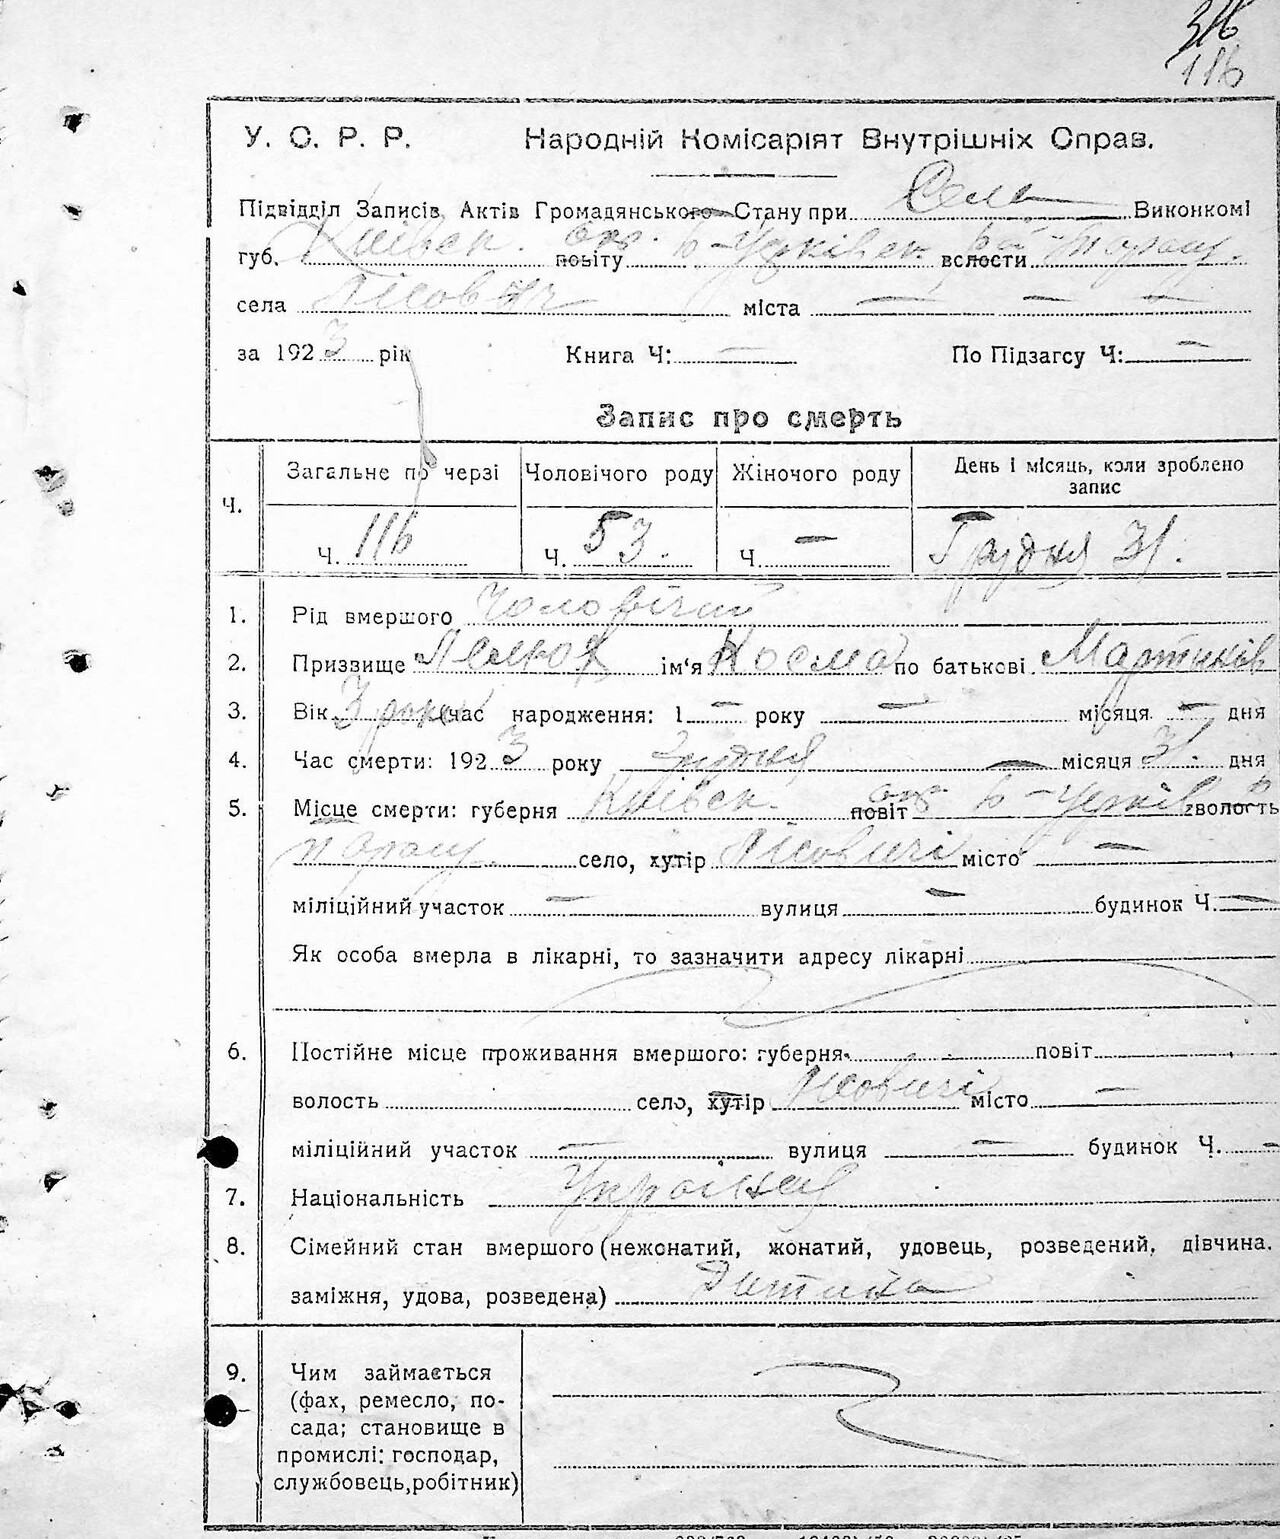 316
116
У. С. Р. Р. Народній Комісаріят Внутрішніх Справ.
Підвідділ Записів Актів Громадянського Стану при Сель Виконкомі
губ. Київськ. окр. повіту Б-Церківск. вслости
села Пісович міста — — —
за 1923 рік Книга Ч: — По Підзагсу Ч: —
Запис про смерть
Ч. Загальне по черзі Чоловічого роду Жіночого роду День і місяць, коли зроблено запис
Ч. 116 Ч. 53. Ч — Грудня 31.
1. Рід вмершого Чоловічий
2. Призвище ім'я Косма по батькові Мартинів
3. Вік 3 роки час народження: 1 — року — місяця — дня
4. Час смерти: 1923 року грудня — місяця 31. дня
5. Місце смерти: губерня Київск. повіт окр Б-Церків волость
село, хутір Пісовичі місто —
міліційний участок — вулиця — будинок Ч. —
Як особа вмерла в лікарні, то зазначити адресу лікарні
6. Постійне місце проживання вмершого: губерня повіт
волость село, хутір Пісовичі місто —
міліційний участок — вулиця — будинок Ч. —
7. Національність
8. Сімейний стан вмершого (нежонатий, жонатий, удовець, розведений, дівчина.
заміжня, удова, розведена) Дитина
9. Чим займається
(фах, ремесло, по-
сада; становище в
промислі: господар,
службовець, робітник)